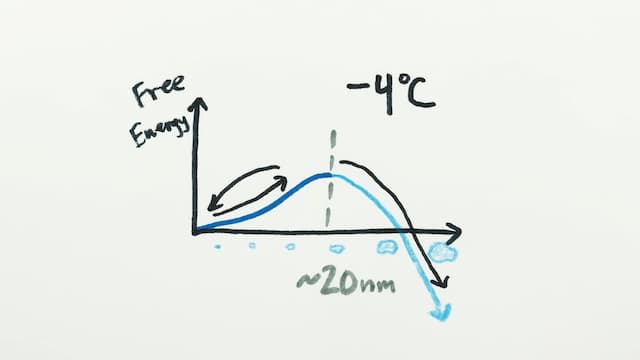 Free
Energy
-4°C
~20nm